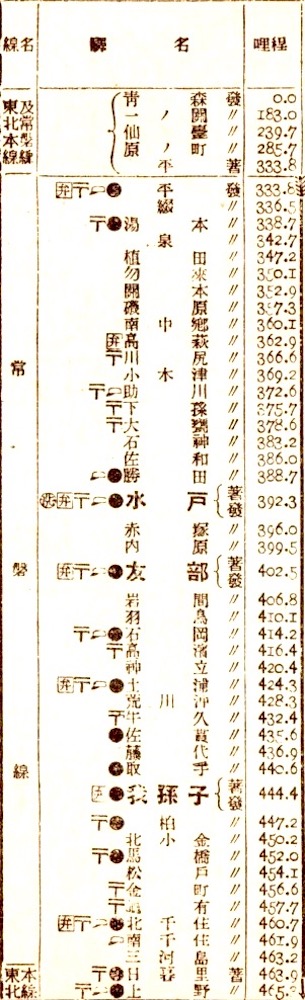 線名 驛名 哩程
東北本線及常磐線
青森 發 0.0
一ノ關 〃 183.0
仙臺 〃 239.7
原ノ町 〃 285.7
平 著 333.8
常磐線
弁〒 平 發 333.8
綴 〃 336.5
〒 湯本 〃 338.7
泉 〃 342.7
植田 〃 347.2
勿來 〃 350.1
關本 〃 352.9
磯原 〃 357.3
南中郷 〃 360.1
弁 高萩 〃 362.9
〒 川尻 〃 366.6
小木津 〃 369.2
〒 助川 〃 372.6
〒 下孫 〃 375.7
〒 大甕 〃 378.6
石神 〃 383.2
佐和 〃 386.0
勝田 〃 388.7
弁〒 水戸 著發 392.3
赤塚 〃 396.0
内原 〃 399.5
弁〒 友部 著發 402.5
岩間 〃 406.8
羽鳥 〃 410.1
〒 石岡 〃 414.2
〒 高濱 〃 416.4
神立 〃 420.4
弁〒 土浦 〃 424.3
荒川沖 〃 428.3
〒 牛久 〃 432.4
〒 佐貫 〃 435.6
藤代 〃 436.9
取手 〃 440.6
弁 我孫子 著發 444.4
〒 柏 〃 447.2
北小金 〃 450.2
〒 馬橋 〃 452.0
松戸 〃 454.1
〒 金町 〃 456.6
〒 龜有 〃 457.7
弁〒 北千住 〃 460.7
南千住 〃 461.9
三河島 〃 463.2
東北本線
日暮里 著 463.9
〒 上野 〃